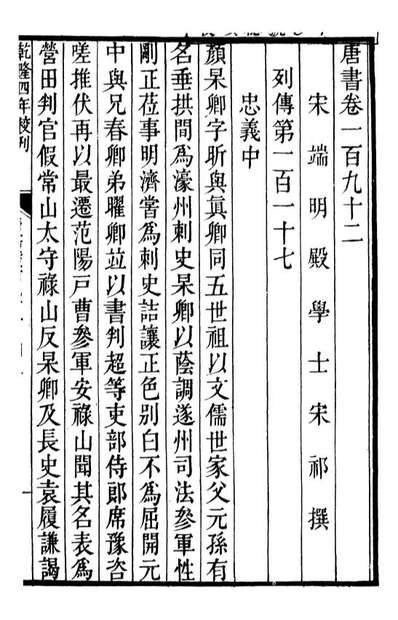 唐書卷一百九十二
宋端明殿學士宋祁撰
列傳第一百一十七
忠義中
顏杲卿字昕與眞卿同五世祖以文儒世家父元孫有
名垂拱間爲濠州刺史杲卿以蔭調遂州司法參軍性
剛正莅事明濟嘗爲刺史詰讓正色别白不爲屈開元
中與兄春卿弟曜卿竝以書判超等吏部侍郎席豫咨
嗟推伏再以最遷范陽戶曹參軍安祿山聞其名表爲
營田判官假常山太守祿山反杲卿及長史袁履謙謁
乾隆四年校刊